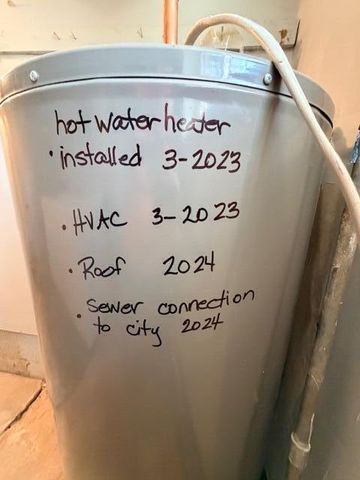 hot water heater
• installed 3-2023
• HVAC 3-2023
• Roof 2024
• sewer connection
to city 2024